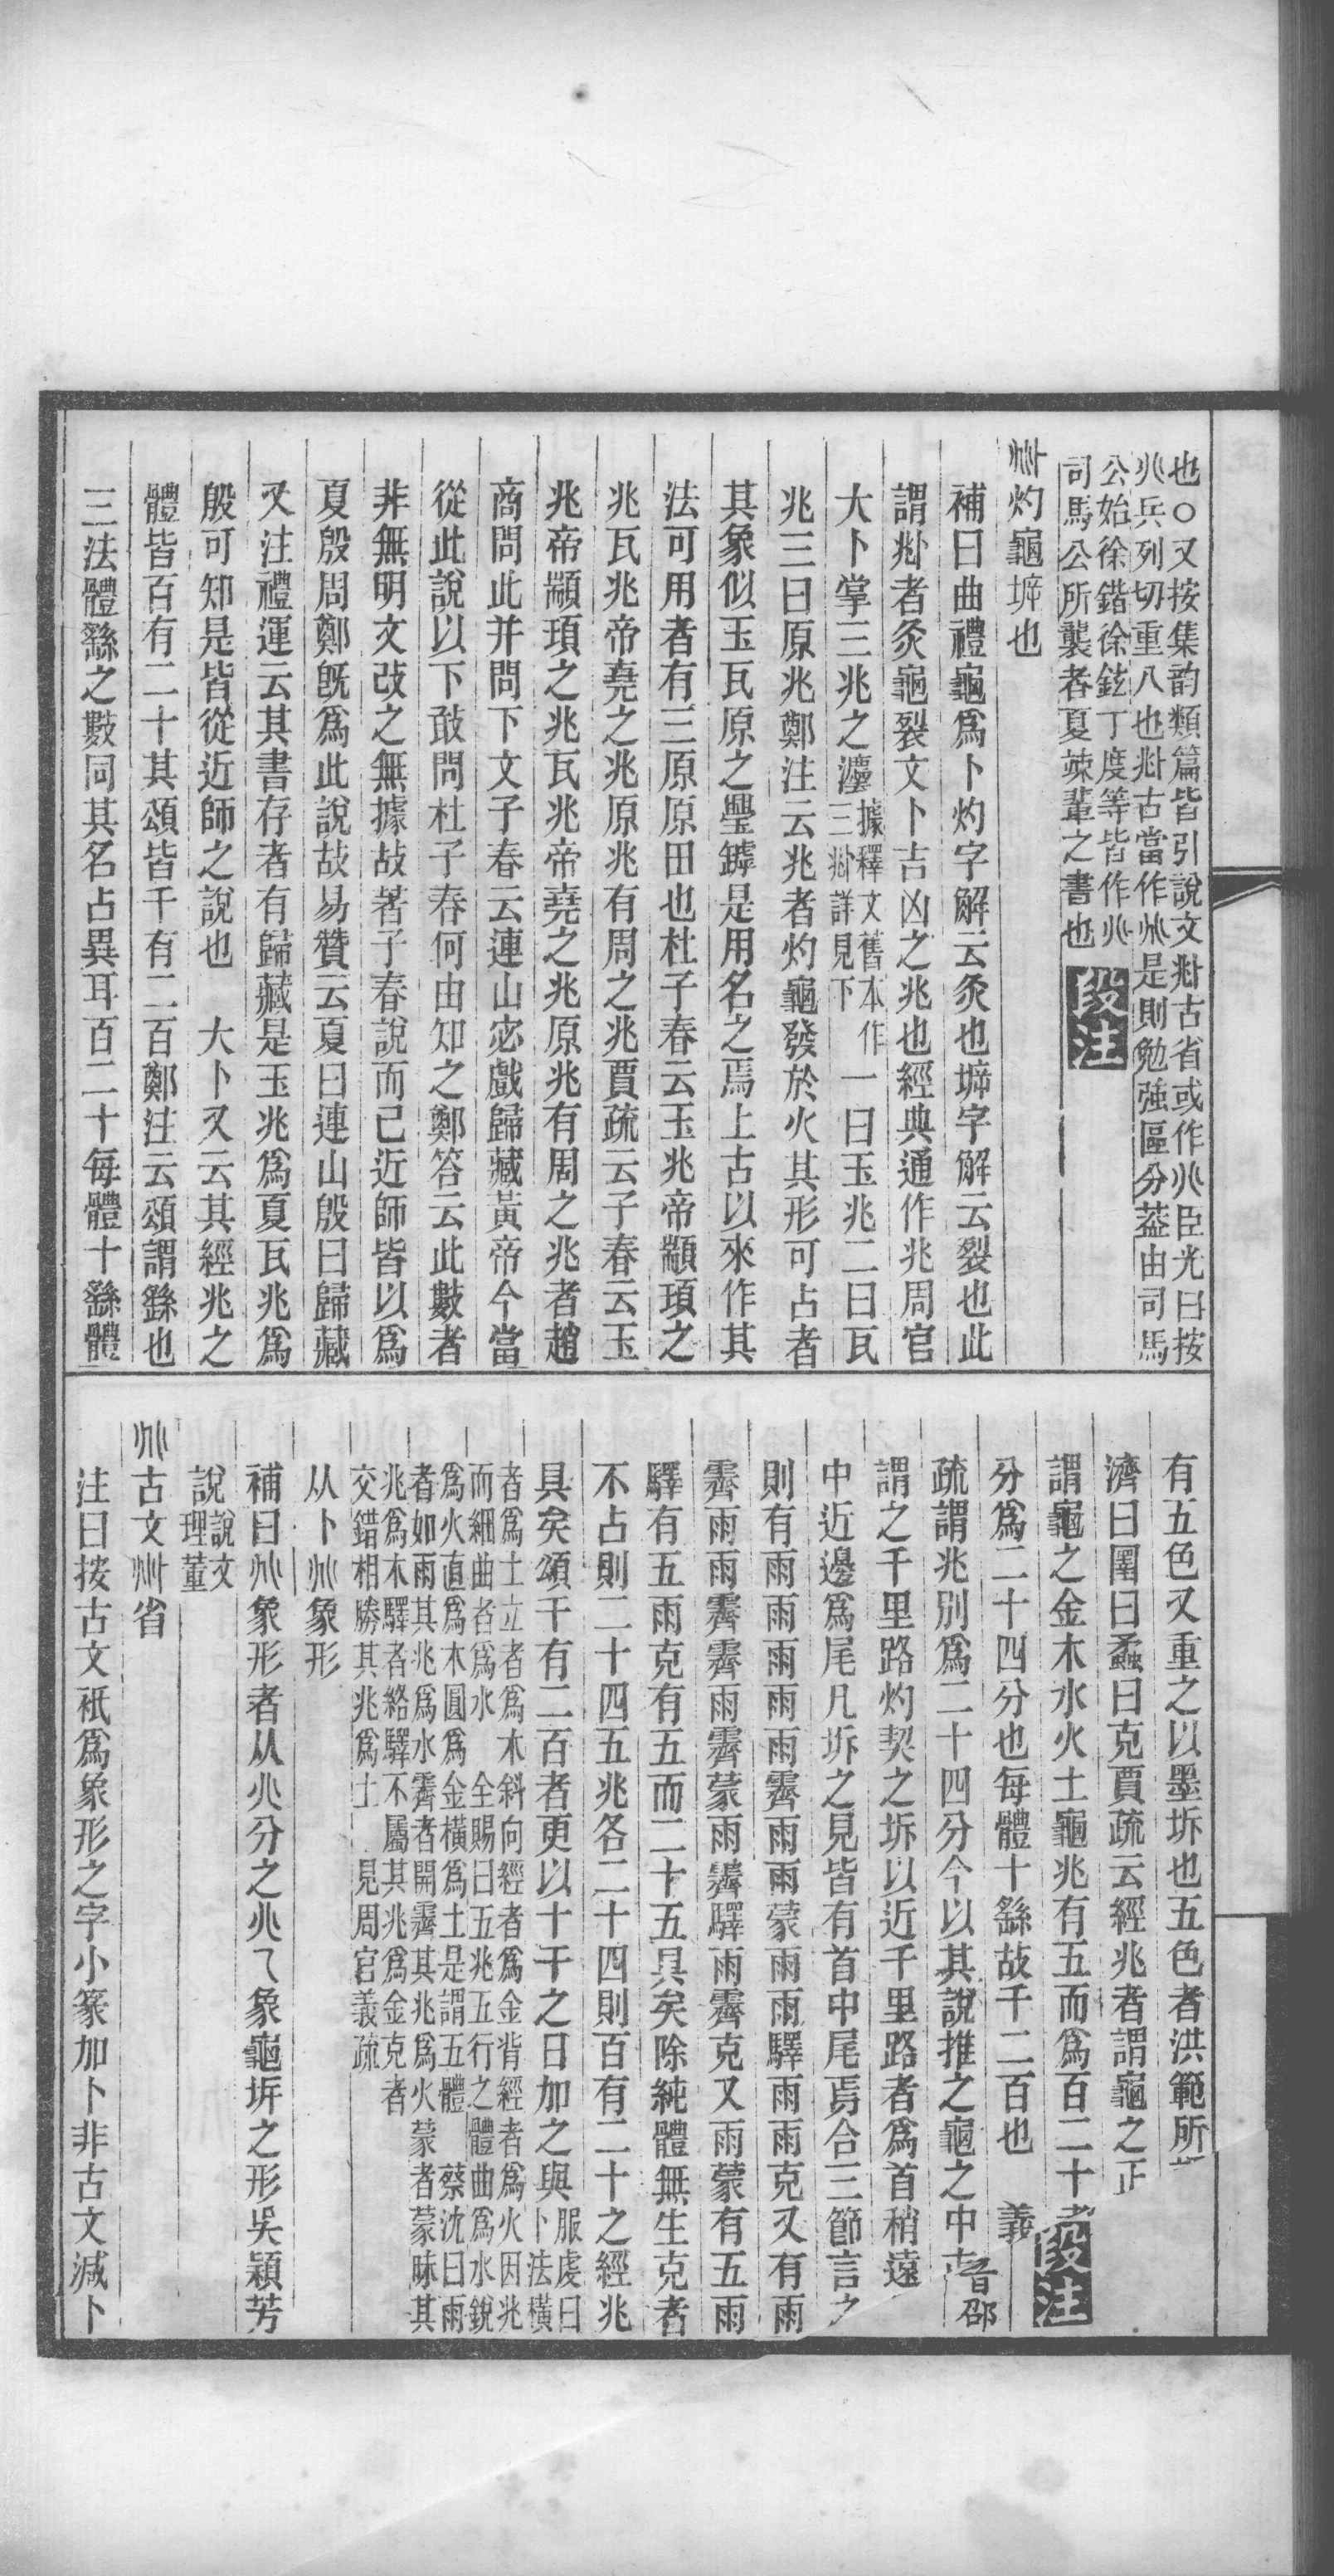 也○又按集韵類篇皆引說文𠧞古省或作㸚臣光曰按
㸚兵列切重八也𠧞古當作𠔁是則勉強區分葢由司馬
公始徐鍇徐鉉丁度等皆作㸚
司馬公所襲者夏竦輩之書也段注
𠧞灼龜㙤也
補曰曲禮龜爲卜灼字解云灸也㙤字解云裂也此
謂𠧞者灸龜裂文卜吉凶之兆也經典通作兆周官
大卜掌三兆之灋據釋文舊本作三𠧞詳見下一曰玉兆二曰瓦
兆三曰原兆鄭注云兆者灼龜發於火其形可占者
其象似玉瓦原之璺鏬是用名之焉上古以來作其
法可用者有三原原田也杜子春云玉兆帝顓頊之
兆瓦兆帝堯之兆原兆有周之兆賈疏云子春云玉
兆帝顓頊之兆瓦兆帝堯之兆原兆有周之兆者趙
商問此并問下文子春云連山宓戲歸藏黃帝今當
從此說以下敢問杜子春何由知之鄭答云此數者
非無明文改之無據故著子春說而已近師皆以爲
夏殷周鄭旣爲此說故易贊云夏曰連山殷曰歸藏
又注禮運云其書存者有歸藏是玉兆爲夏瓦兆爲
殷可知是皆從近師之說也　大卜又云其經兆之
體皆百有二十其頌皆千有二百鄭注云頌謂繇也
三法體繇之數同其名占異耳百二十每體十繇體
有五色又重之以墨坼也五色者洪範所
濟曰圛曰蟊曰克賈疏云經兆者謂龜之正
謂龜之金木水火土龜兆有五而爲百二十者段注
分爲二十四分也每體十繇故千二百也　義
疏謂兆別爲二十四分今以其說推之龜之中
謂之千里路灼契之坼以近千里路者爲首稍遠
中近邊爲尾凡坼之見皆有首中尾焉合三節言之
則有雨雨雨雨雨霽雨雨蒙雨雨驛雨雨克又有雨
霽雨雨霽霽雨霽蒙雨霽驛雨霽克又雨蒙有五雨
驛有五雨克有五而二十五具矣除純體無生克者
不占則二十四五兆各二十四則百有二十之經兆
具矣頌千有二百者更以十干之日加之與服虔曰卜法橫
者爲土立者爲木斜向經者爲金背經者爲火因兆
而細曲者爲水　全賜曰五兆五行之體曲爲水銳
爲火直爲木圓爲金橫爲土是謂五體　蔡沈曰雨
者如雨其兆爲水霽者開霽其兆爲火蒙者蒙昧其
兆爲木驛者絡驛不屬其兆爲金克者
交錯相勝其兆爲土　見周官義疏
从卜𠔁象形
補曰𠔁象形者从㸚分之㸚乁象龜坼之形吳穎芳
說說文理董
𠔁古文𠧞省
注曰按古文祇爲象形之字小篆加卜非古文減卜